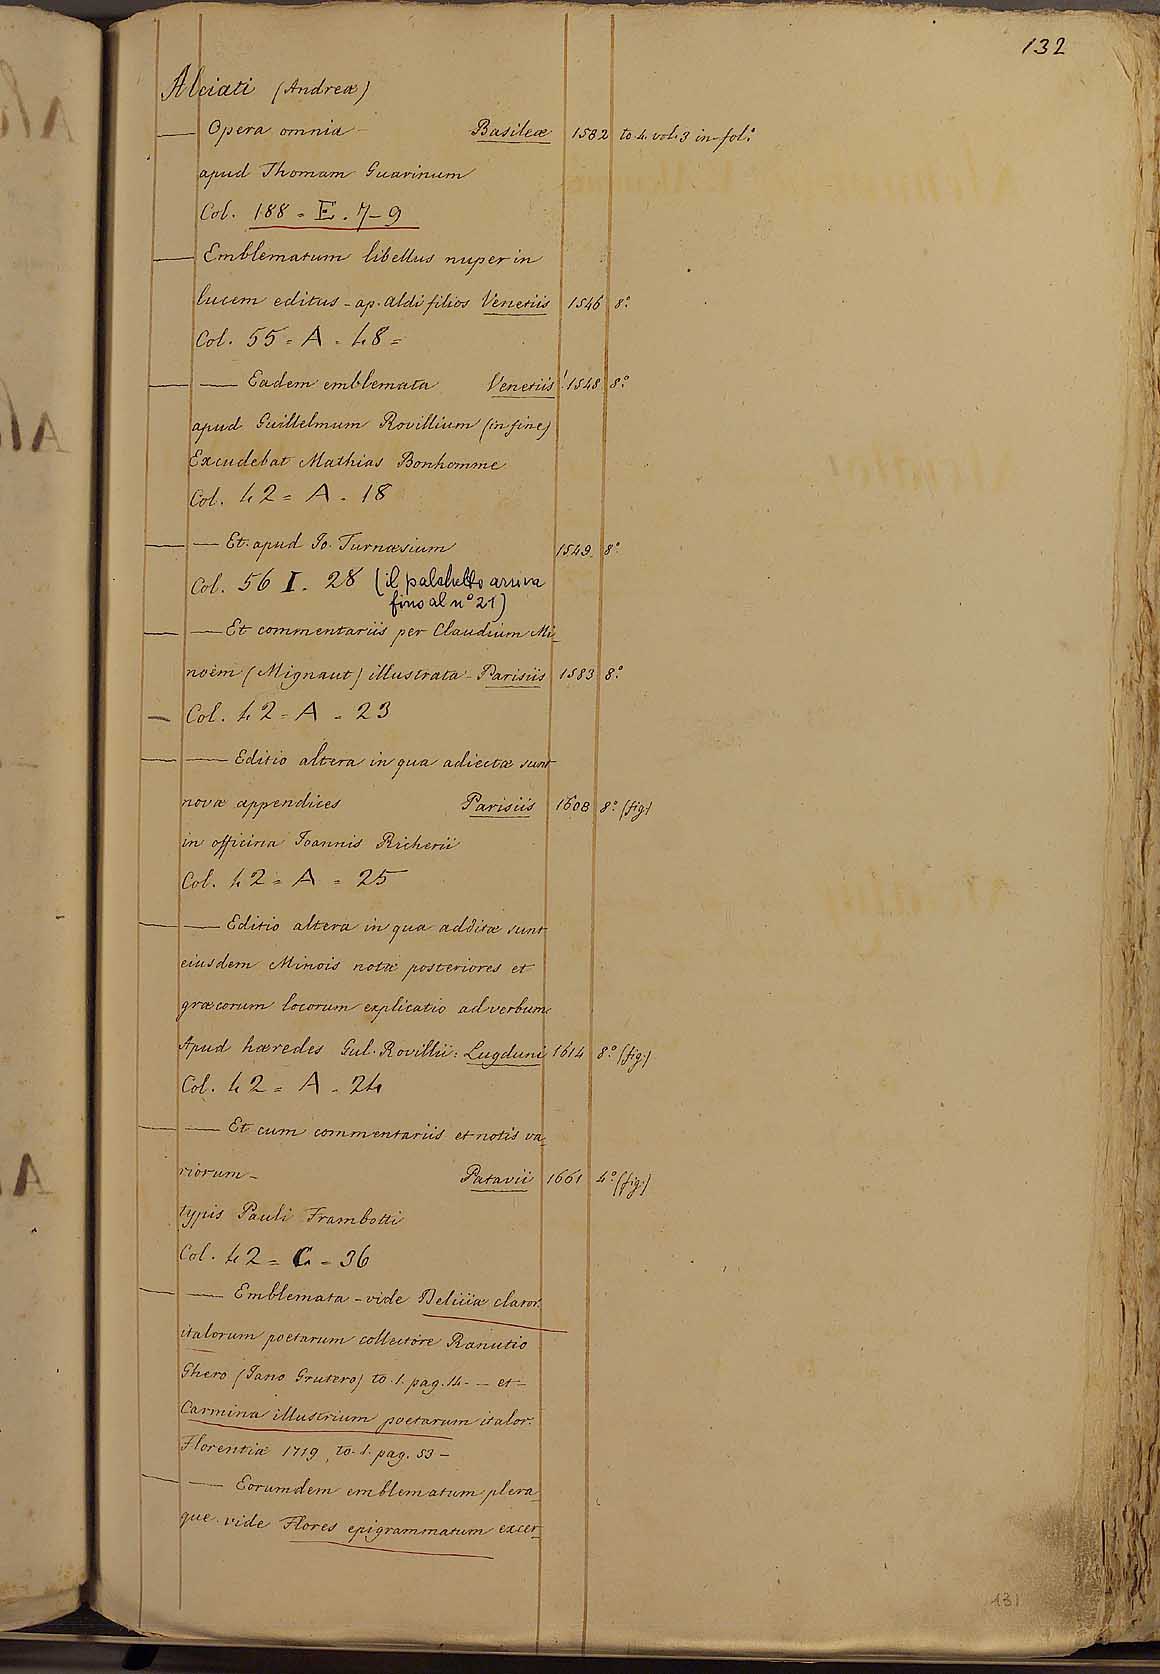 132
Alciati (Andreæ)
— Opera omnia – Basileæ 1582 to. 4. vol. 3 in-fol.º
apud Thomam Guarinum
Col. 188 = E. 7-9
— Emblematum libellus nuper in
lucem editus – ap. Aldi filios Venetiis 1546 8.º
Col. 55 = A = 48 =
— — Eadem emblemata Venetiis! 1548 8.º
apud Guillelmum Rovillium (in fine)
Excudebat Mathias Bonhomme
Col. 42 = A - 18
— — Et apud Jo. Turnæsium 1549 8.º
Col. 56 I. 28 (il palchetto arriva
fino al nº 21)
— — Et commentariis per Claudium Mi-
noëm (Mignaut) illustrata – Parisiis 1583 8.º
— Col. 42 = A - 23
— — Editio altera in qua adiectæ sunt
novæ appendices Parisiis 1608 8.º (fig.)
in officina Joannis Richerii
Col. 42 = A = 25
— — Editio altera in qua additæ sunt
eiusdem Minois notæ posteriores et
græcorum locorum explicatio ad verbum
Apud hæredes Gul. Rovillii: Lugduni 1614 8.º (fig.)
Col. 42 = A - 24
— — Et cum commentariis et notis va-
riorum – Patavii 1661 4.º (fig.)
typis Pauli Frambotti
Col. 42 = C = 36
— — Emblemata – vide Deliciæ claror.
italorum poetarum collectore Ranutio
Ghero (Jano Grutero) to. 1. pag. 14 - — et –
Carmina illustrium poetarum italor.
Florentiæ 1719, to. 1. pag. 53 –
— — Eorumdem emblematum plera-
que vide Flores epigrammatum excer-
131